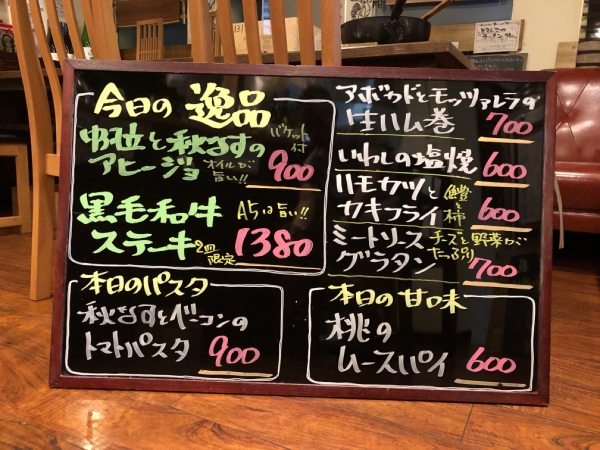 今日の逸品
アヒージョ
バケット付
オイルが旨い!!
900
黒毛和牛
A5は旨い!!
ステーキ
2皿限定
1380
本日のパスタ
秋なすとベーコンの
トマトパスタ
900
アボカドとモッツァレラの
生ハム巻
700
いわしの塩焼
600
ハモカツと
カキフライ
600
ミートソース
グラタン
チーズと野菜が
たっぷり
700
本日の甘味
桃の
ムースパイ
600